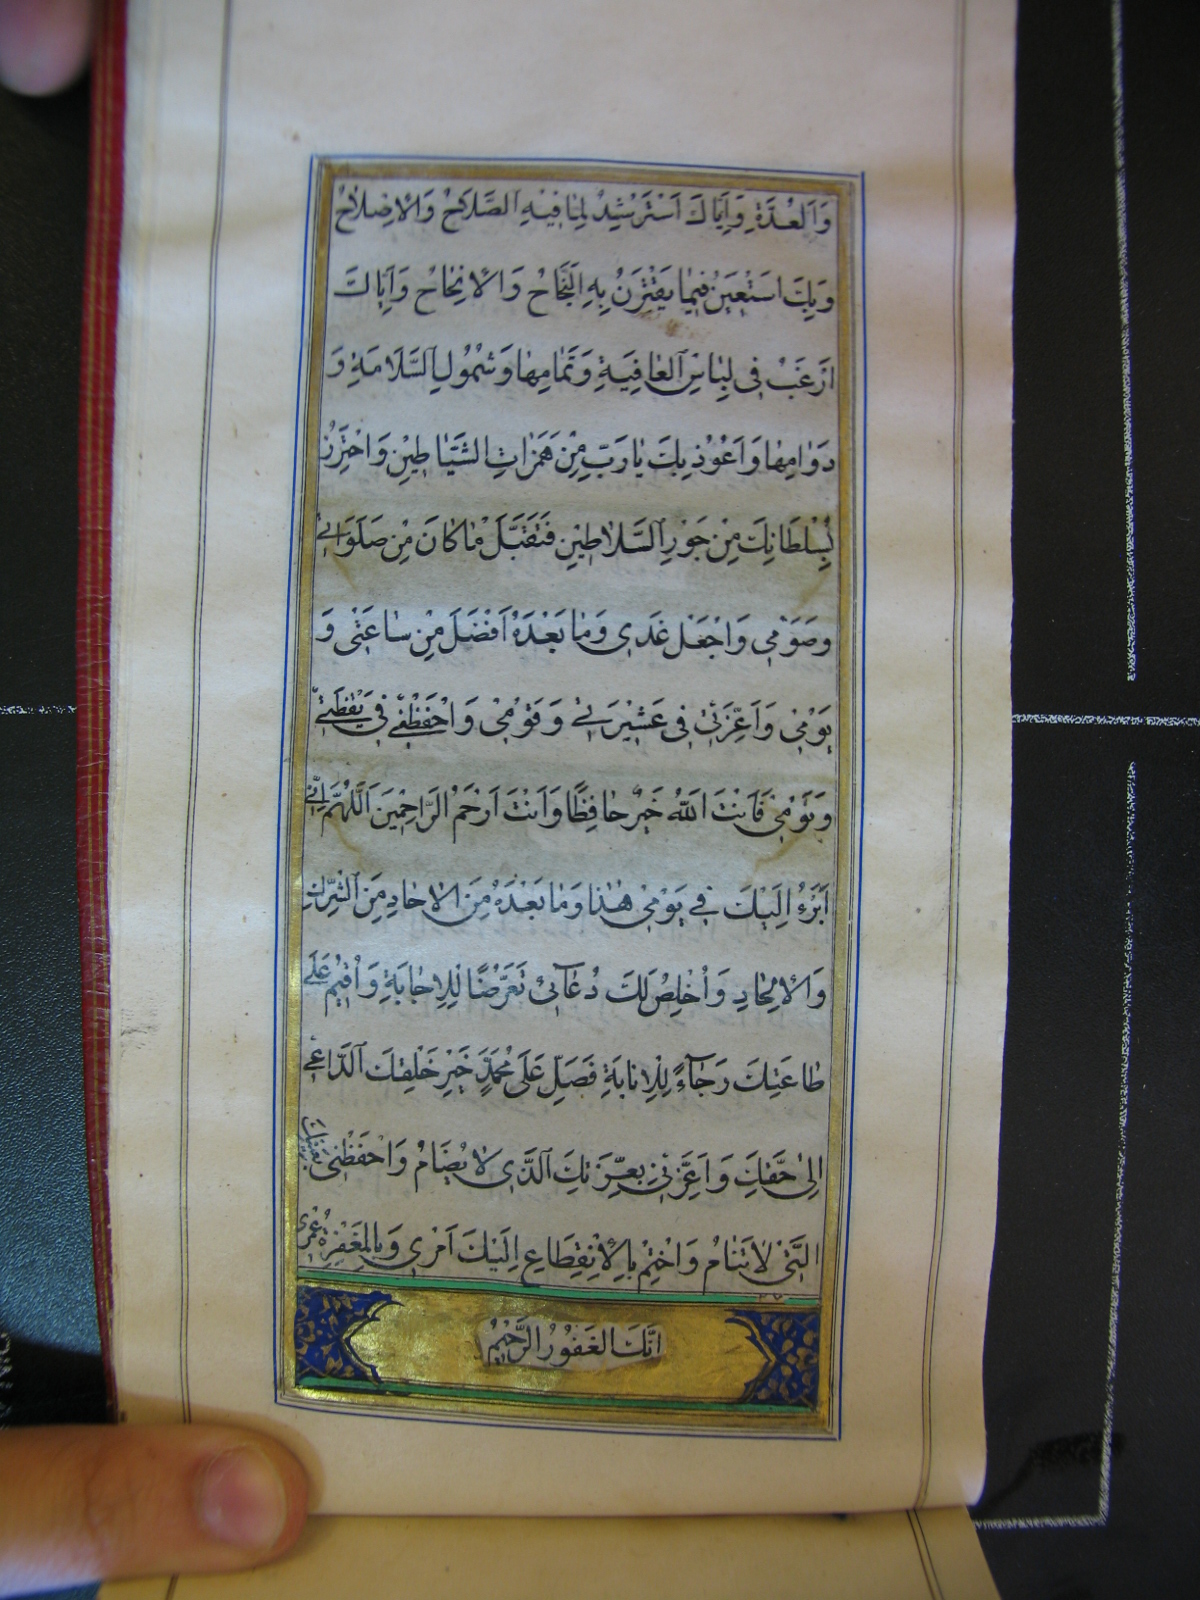 وَالْعُدَّةِ وَاِيَّاكَ اَسْتَرْشِدُ لِمَا فِيْهِ الصَّلَاحُ وَالْاِصْلَاحُ
وَبِكَ اَسْتَعِيْنُ فِيْمَا يَقْتَرِنُ بِهِ النَّجَاحُ وَالْاِنْجَاحُ وَاِيَّاكَ
اَرْغَبُ فِى لِبَاسِ الْعَافِيَةِ وَتَمَامِهَا وَشُمُولِ السَّلَامَةِ وَ
دَوَامِهَا وَاَعُوْذُ بِكَ يَا رَبِّ مِنْ هَمَزَاتِ الشَّيَاطِيْنِ وَاَحْتَرِزُ
بِسُلْطَانِكَ مِنْ جَوْرِ السَّلَاطِيْنِ فَتَقَبَّلْ مَا كَانَ مِنْ صَلَوَاتِى
وَصَوْمِى وَاجْعَلْ غَدِى وَمَا بَعْدَهُ اَفْضَلَ مِنْ سَاعَتِى وَ
يَوْمِى وَاَعِزَّنِى فِى عَشِيْرَتِى وَقَوْمِى وَاحْفَظْنِى فِى يَقْظَتِى
وَنَوْمِى فَاَنْتَ اللّٰهُ خَيْرٌ حَافِظًا وَاَنْتَ اَرْحَمُ الرَّاحِمِيْنَ اَللّٰهُمَّ اِنِّى
اَبْرَءُ اِلَيْكَ فِى يَوْمِى هٰذَا وَمَا بَعْدَهُ مِنَ الْاٰحَادِ مِنَ الشِّرْكِ
وَالْاِلْحَادِ وَاُخْلِصُ لَكَ دُعَآئِى تَعَرُّضًا لِلْاِجَابَةِ وَاُقِيْمُ عَلٰى
طَاعَتِكَ رَجَآءً لِلْاِنَابَةِ فَصَلِّ عَلٰى مُحَمَّدٍ خَيْرِ خَلْقِكَ الدَّاعِى
اِلٰى حَقِّكَ وَاَعِزَّنِى بِعِزِّكَ الَّذِى لَا يُضَامُ وَاحْفَظْنِى بِعَيْنِكَ
الَّتِى لَا تَنَامُ وَاخْتِمْ بِالْاِنْقِطَاعِ اِلَيْكَ اَمْرِى وَبِالْمَغْفِرَةِ عُمْرِى
اِنَّكَ الْغَفُوْرُ الرَّحِيْمُ